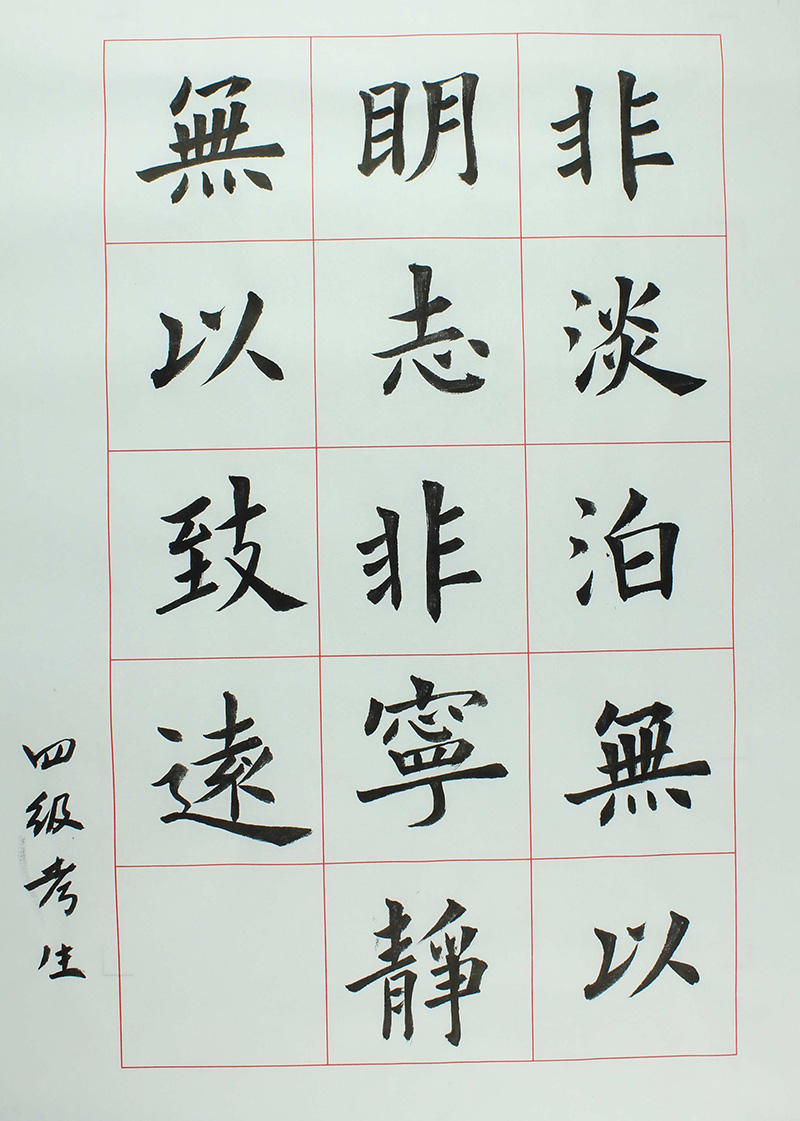 非淡泊無以
明志非寧靜
無以致遠
四級考生